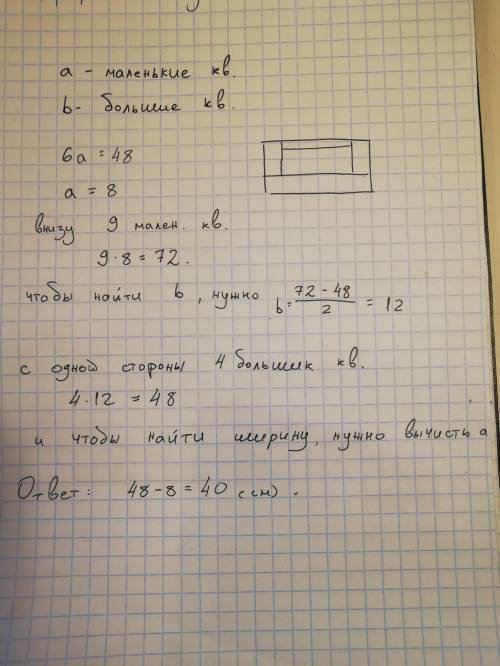 a - маленькие кв.
b - большие кв.
6a = 48
a = 8
внизу 9 мален. кв.
9·8 = 72.
чтобы найти b, нужно b = (72 - 48)/2 = 12
с одной стороны 4 больших кв.
4·12 = 48
и чтобы найти ширину, нужно вычисть a
Ответ: 48 - 8 = 40 (см).